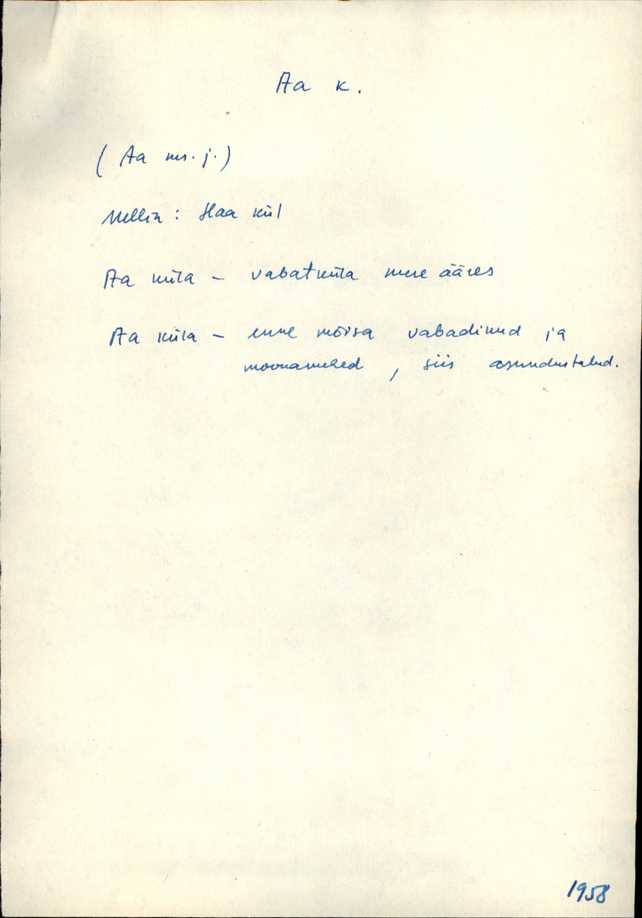 Aa k.
(Aa ms. j.)
Mellin : Haa kül
Aa küla – vabatküla mere ääres
Aa küla – enne mõisa vabadikud ja
moonamehed, siis asundustalud.
1958